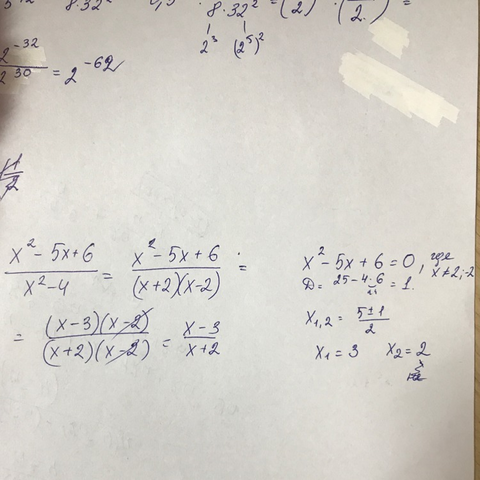 8·32² = (2)
2³ (2⁵)²
2⁻³²/2³⁰ = 2⁻⁶²
(x² - 5x + 6)/(x² - 4) = (x² - 5x + 6)/((x+2)(x-2)) =
= ((x-3)(x-2))/((x+2)(x-2)) = (x-3)/(x+2)
x² - 5x + 6 = 0, где x ≠ 2; -2
D = 25 - 4·6 = 1.
x₁,₂ = (5±1)/2
x₁ = 3 x₂ = 2